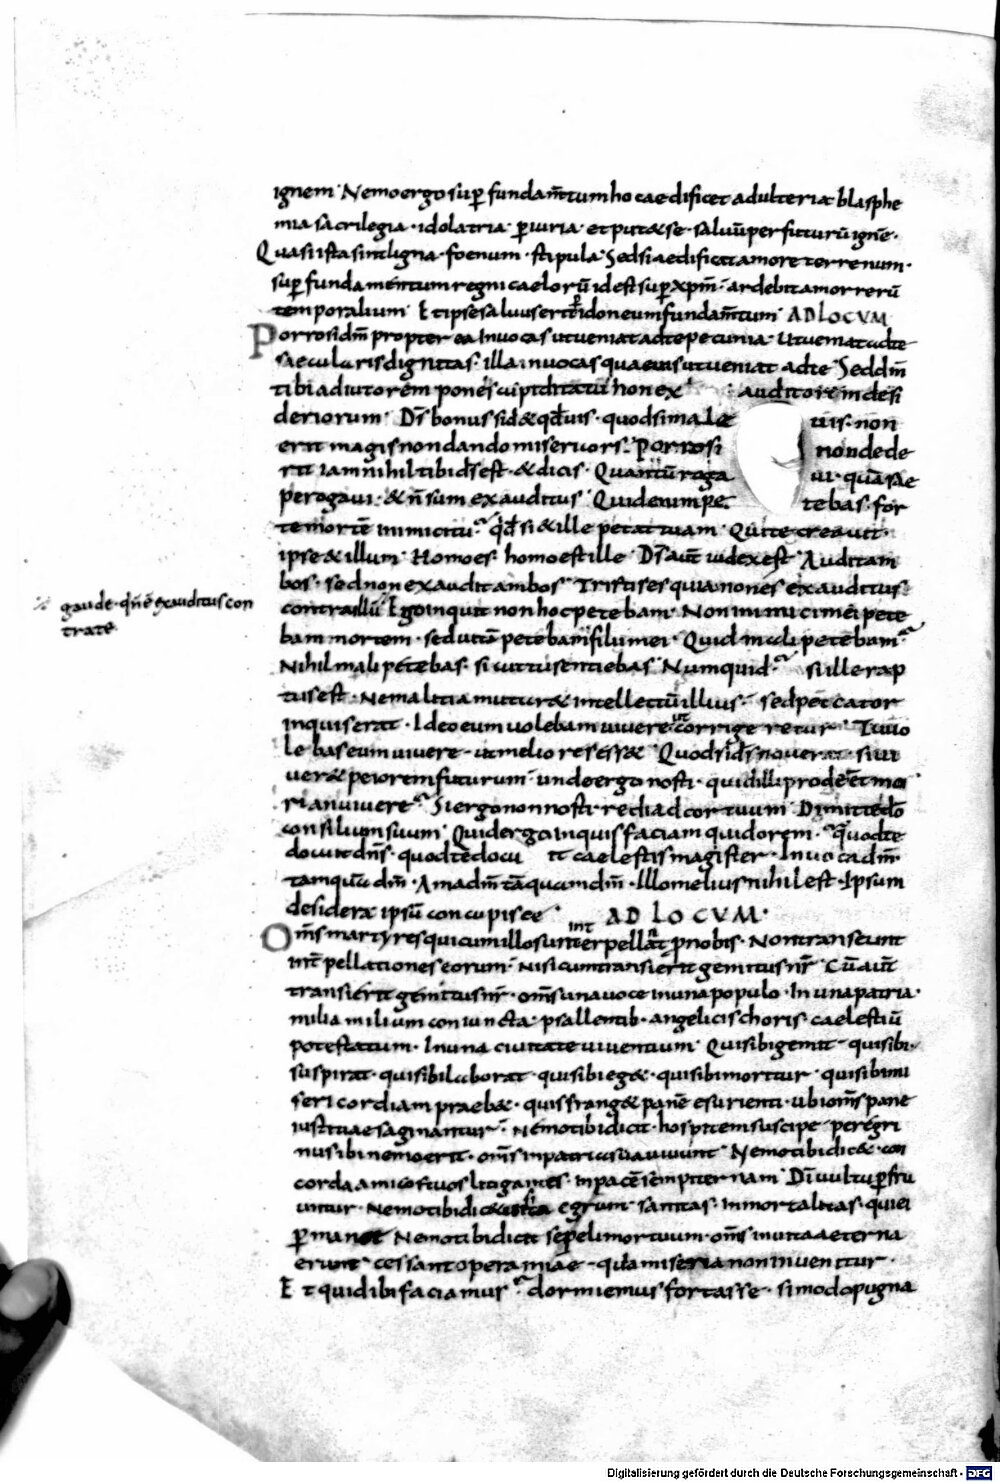 ignem· Nemo ergo sup̱ fundam̄tum hoc aedificet adulteria blasphe
mia sacrilegia · idolatria · p̱iuria · et put&se · saluū per futurū ignē ·
Quasi ista sint ligna · foenum · stipula· Sed si aedificat amore terrenum ·
sup̱ fundamentum regni caelorū id est sup̱ xpm̄ · ardebit amor rerū
temporalium· Et ipse saluus erit p̱ idoneum fundam̄tum· AD LOCVM
Porro si dm̄ propter ea Inuocas ut ueniat ad te pecunia· Ut ueniat ad te
saecularis dignitas· illa inuocas quae uis ut ueniat ad te· Sed dm̄
tibi adiutorem pones cupiditatū non ex auditorem desi
deriorum· Ds̄ bonus si d& qd̄ uis· quod si male uis· non
erit magis non dando misericors· Porro si non dede
rit iam nihil tibi ds̄ est· & dicis· Quantū roga ui· quā sae
pe rogaui· & n̄ sum exauditus· Quid enim pe tebas· for
te mortē inimici tui· qd̄ si & ille petat tuam· Qui te creauit·
ipse & illum· Homo es· homo est ille· Ds̄ aut̄ iudex est· Audit am
bos· sed non exaudit ambos· Tristis es quia non es exauditus
gaude· qn̄ ē exauditus con
tra te
contra illū· Ego inquit non hoc petebam· Non inimici mei pete
bam mortem· sed uitā petebam filii mei· Quid mali petebam
Nihil mali petebas· si cut tu sentiebas· Numquid· si ille rap
tus est· ne malitia mutar& intellectū illius· sed peccator
inquis erat· Ideo eum uolebam uiuere ut corrigeretur· Tu uo
lebas eum uiuere· ut melior ess&· Quod si ds̄ nouerat· si ui
uer& peiorem futurum· unde ergo nosti· quid illi prode ēt mo
ri an uiuere· Si ergo non nosti· redi ad cor tuum· Dimitte dō
consilium suum· Quid ergo inquis faciam quid orem· quod te
docuit dn̄s· quod te docu it caelestis magister· Inuoca dm̄
tamquā dm̄· Ama dm̄ tāquam dm̄· Illo melius nihil est· Ipsum
desidera· ipsū concupisce AD LOCVM·
Om̄s martyres qui cum illo sunt interpellant p̱ nobis· Non transeunt
int̄pellationes eorum· nisi cum transierit gemitus nr̄· Cū aut̄
transierit gemitus nr̄· om̄s una uoce in una populo· In una patria·
milia milium coniuncta· psallentib· angelicis choris· caelestiū
potestatum· In una ciuitate uiuentium· Quis ibi gemit· quis ibi
suspirat· quis ibi laborat· quis ibi eg&· quis ibi moritur· quis ibi mi
sericordiam praeb&· quis frang& panē esurienti· ubi om̄s pane
iustitiae saginantur· Nemo tibi dicit· hospitem suscipe· peregri
nus ibi nemo erit· om̄s in patria sua uiuunt· Nemo tibi dic&· con
corda amicos tuos litigantes· in pacē sempiternam· Dī uultu p̱fru
untur· Nemo tibi dic& uisita egrum· sanitas· Inmortalitas· quiei
p̱man& Nemo tibi dicit sepeli mortuum· om̄s in uita aeterna
erunt· cessant opera m̄iae· quia miseria non inuenitur·
Et quid ibi faciamus· dormiemus fortasse· si modo pugna
Digitalisierung gefördert durch die Deutsche Forschungsgemeinschaft - DFG